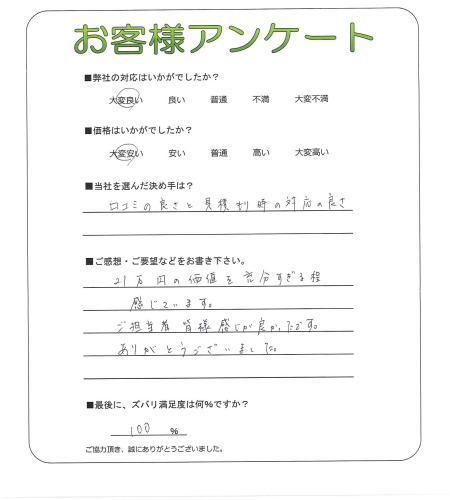 お客様アンケート
■弊社の対応はいかがでしたか?
大変良い 良い 普通 不満 大変不満
■価格はいかがでしたか?
大変安い 安い 普通 高い 大変高い
■当社を選んだ決め手は?
口コミの良さと見積り時の対応の良さ
■ご感想・ご要望などをお書き下さい。
21万円の価値を充分すぎる程
感じています。
ご担当者皆様感じが良かったです。
ありがとうございました。
■最後に、ズバリ満足度は何%ですか?
100 %
ご協力頂き、誠にありがとうございました。